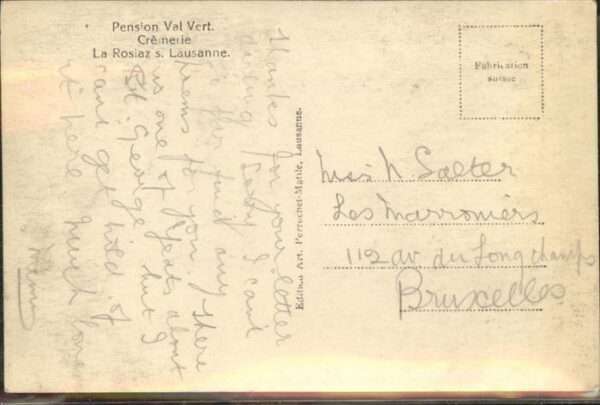 Pension Val Vert.
Crèmerie
La Rosiaz s. Lausanne.
Thanks for your letter
darling Sorry I can't
find any
poems for you there
is one of Yeats about
St. George but I
cant get hold of
it here much love
Mummy
Edition Art. Perrochet-Matile, Lausanne.
Fabrication
suisse
Miss N. Salter
Les Marroniers
112 av du Longchamps
Bruxelles